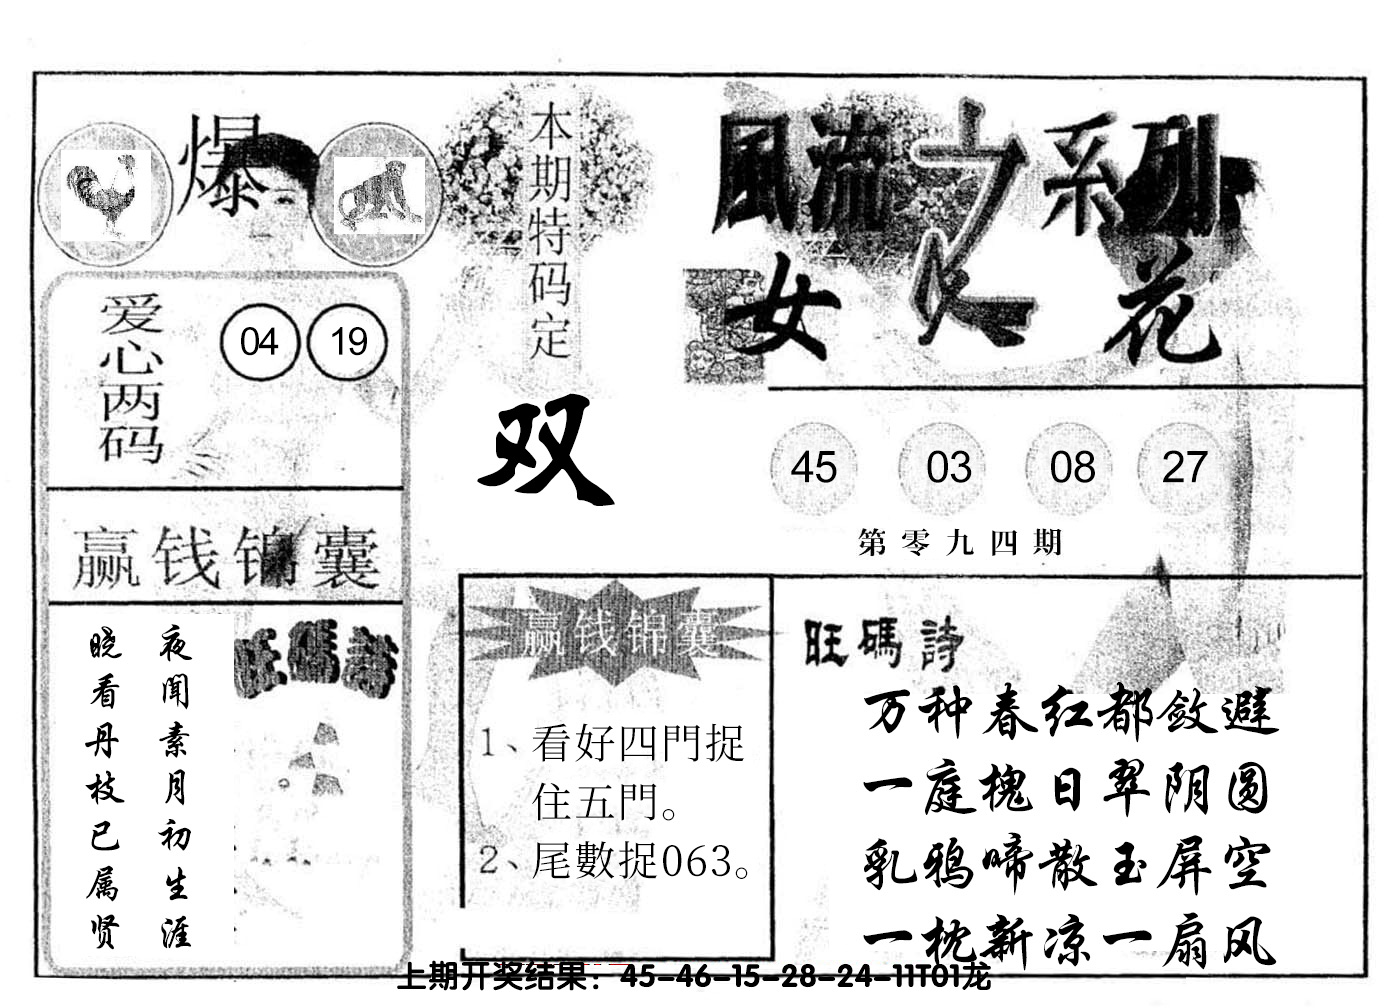 爆
本期特码定
双
風流之系列
女人花
爱心两码
04 19
45 03 08 27
第零九四期
赢钱锦囊
夜闻素月初生涯
晓看丹枝已属贤
旺碼詩
赢钱锦囊
1、看好四門捉
住五門。
2、尾數捉063。
旺碼詩
万种春红都敛避
一庭槐日翠阴圆
乳鸦啼散玉屏空
一枕新凉一扇风
上期开奖结果：45-46-15-28-24-11T01龙